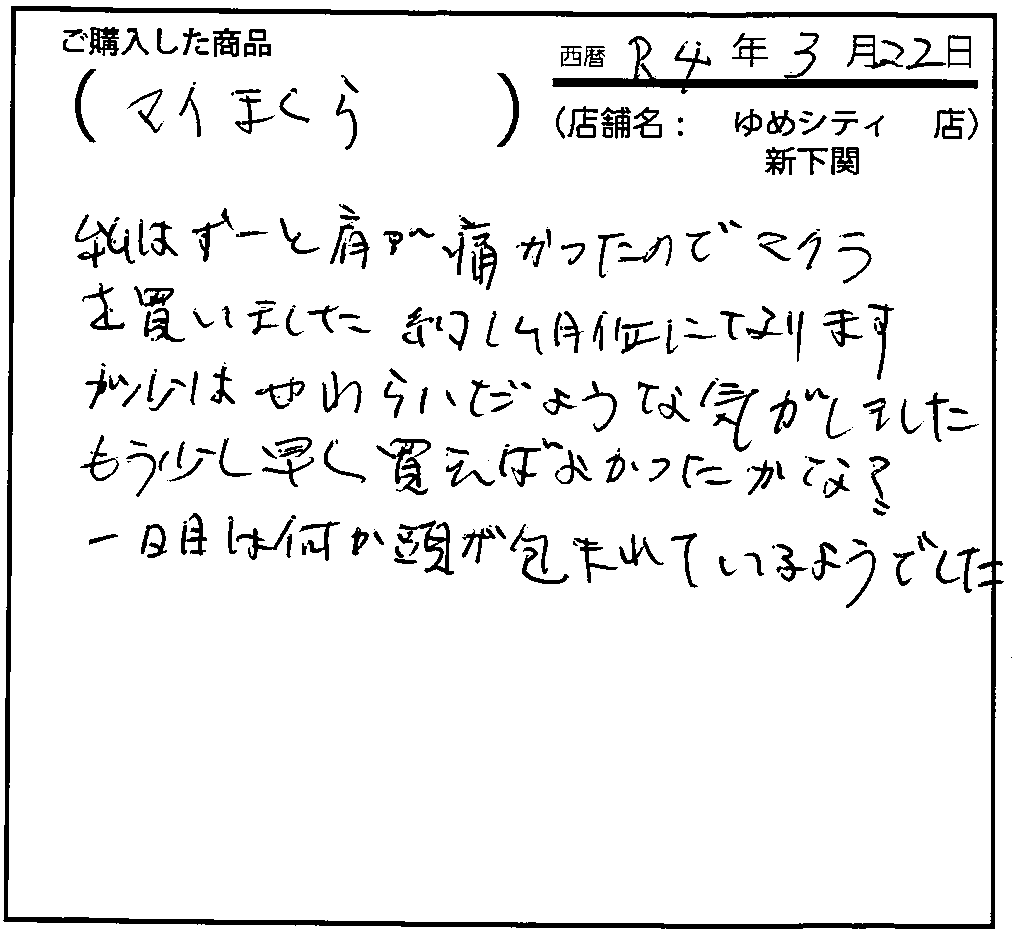 ご購入した商品
西暦 R4年3月22日
(マイまくら)
(店舗名: ゆめシティ 店)
新下関
私はずーと肩が痛かったのでマクラ
を買いました 約1ヶ月位になります
が少しはやわらいだような気がしました
もう少し早く買えばよかったかな?
一日目は何か頭が包まれているようでした